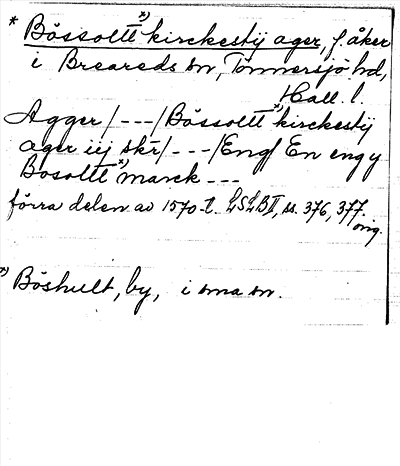 * Bössoltt *) kirckestij ager, f. åker
i Breareds sn, Tönnersjö hd,
Hall. l.
Agger /---/ Bössoltt *) kirckestij
ager iij skr /---/ Eng / En eng y
Bosoltt *) marck ---
förra delen av 1570-t. LSLB II, ss. 376, 377
orig.
*) Böshult, by, i sma sn.